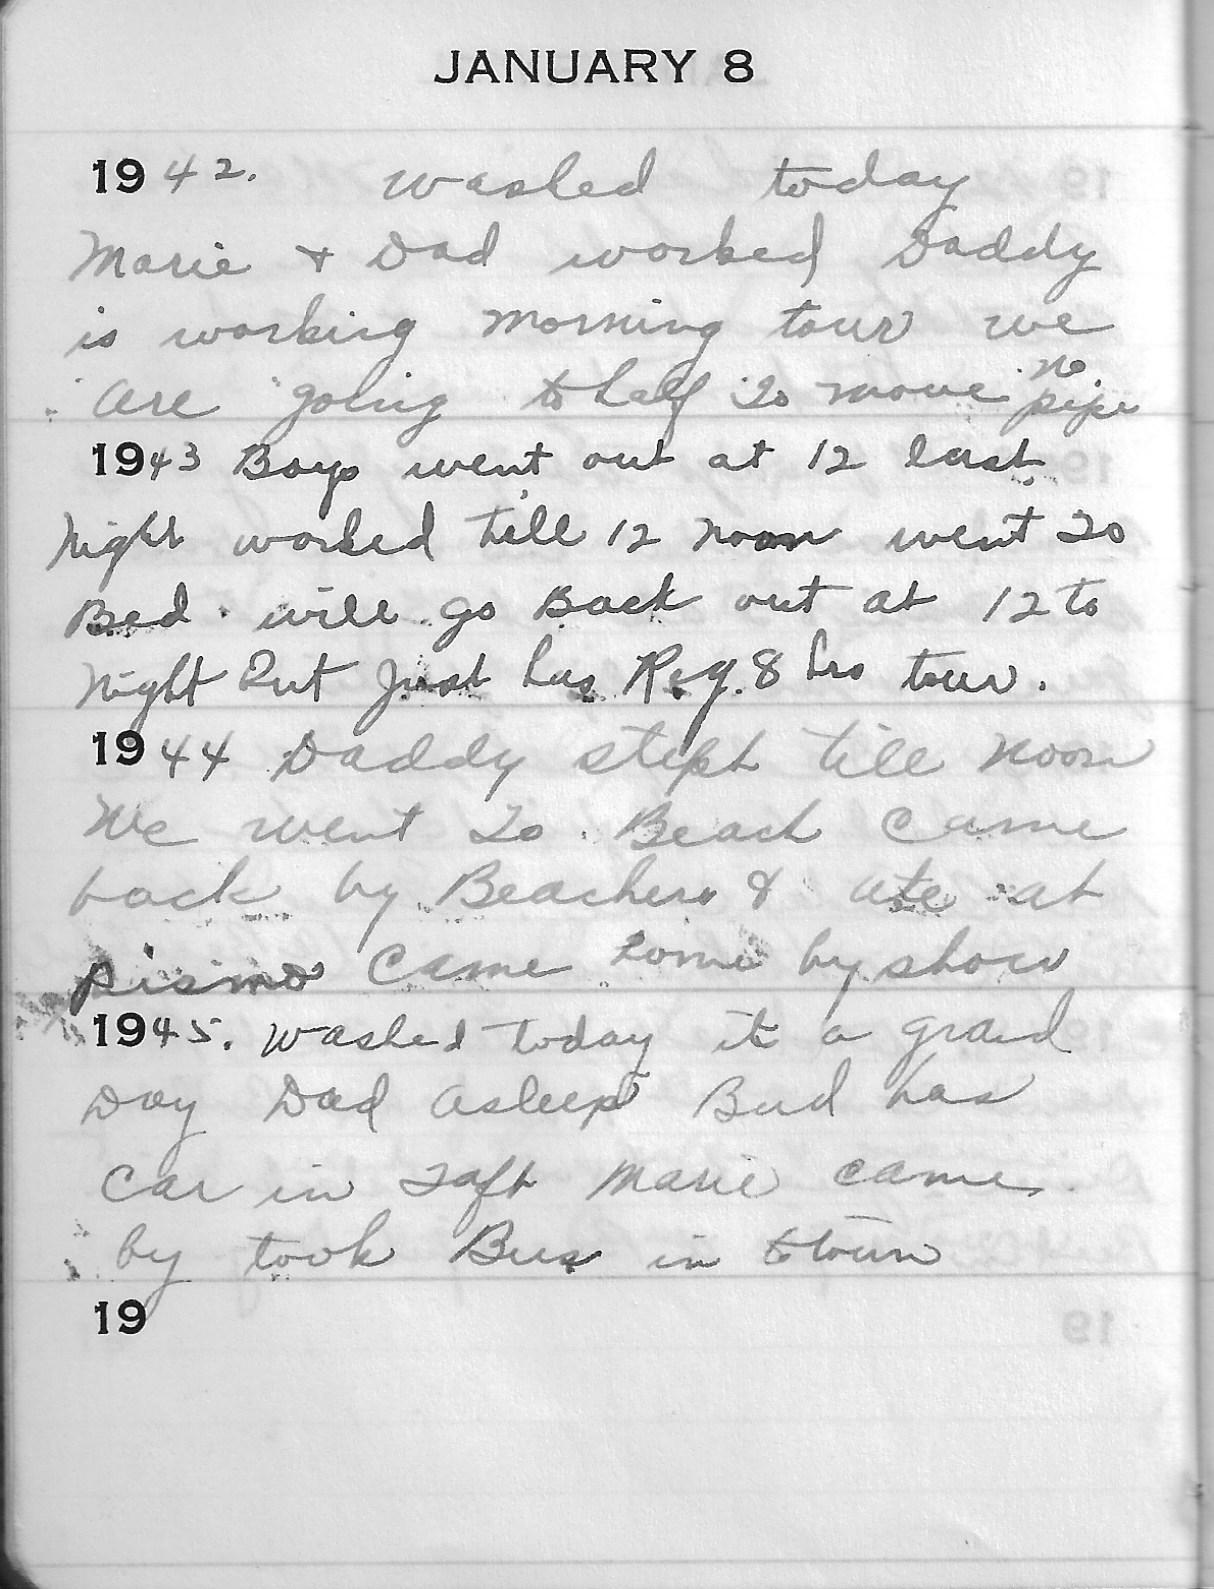 JANUARY 8
1942. washed today
Marie + Dad worked Daddy
is working morning tour we
are going to half to move no pipe
1943 Boys went out at 12 last
night worked till 12 noon went To
Bed. will go Back out at 12 to
night But Just has Reg. 8 hrs tour.
1944 Daddy slept till noon
We went To Beach came
back by Beachers & ate at
Pismo came home by show
1945. Washed today it a grand
Day Dad asleep Bud has
Car in Taft Marie came
by took Bus in to town
19